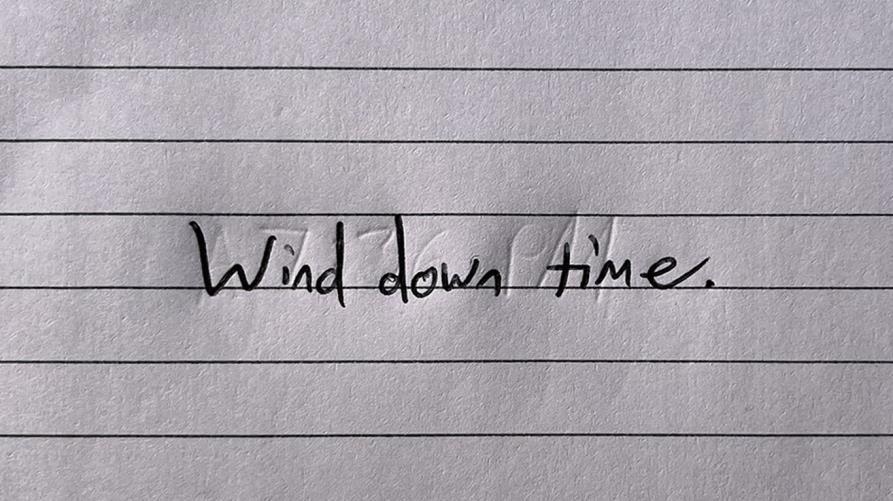 Wind down time.